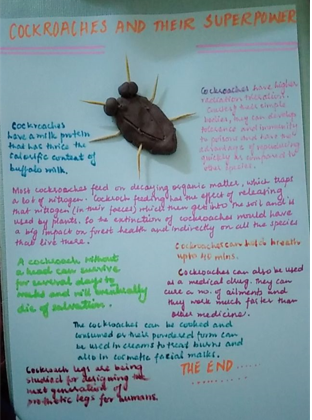 COCKROACHES AND THEIR SUPERPOWER
Cockroaches
have a milk protein
that has thrice the
calorific content of
buffalo milk.
Cockroaches have higher
bodies, they can develop
and immunity
to poison and have
of reproducing
quickly as compared to
Most cockroaches feed on decaying organic matter, which traps
a lot of nitrogen. Cockroach feeding has the effect of releasing
that nitrogen (in their feces) which then gets into the soil and is
used by plants. So the extinction of cockroaches would have
a big impact on forest health and indirectly on all the species
that live there.
Cockroaches can hold breath
upto 40 mins.
A cockroach without
a head can survive
for several days to
weeks and will eventually
die of
Cockroaches can also be used
as a medical drug. They can
cure a no. of ailments and they
work much faster than
other medicines.
The cockroaches can be cooked and
consumed or their powdered form can
be used in creams to treat burns and
also in cosmetic facial masks.
Cockroach legs are being
studied for designing the
next generation of
prosthetic legs for humans.
THE END